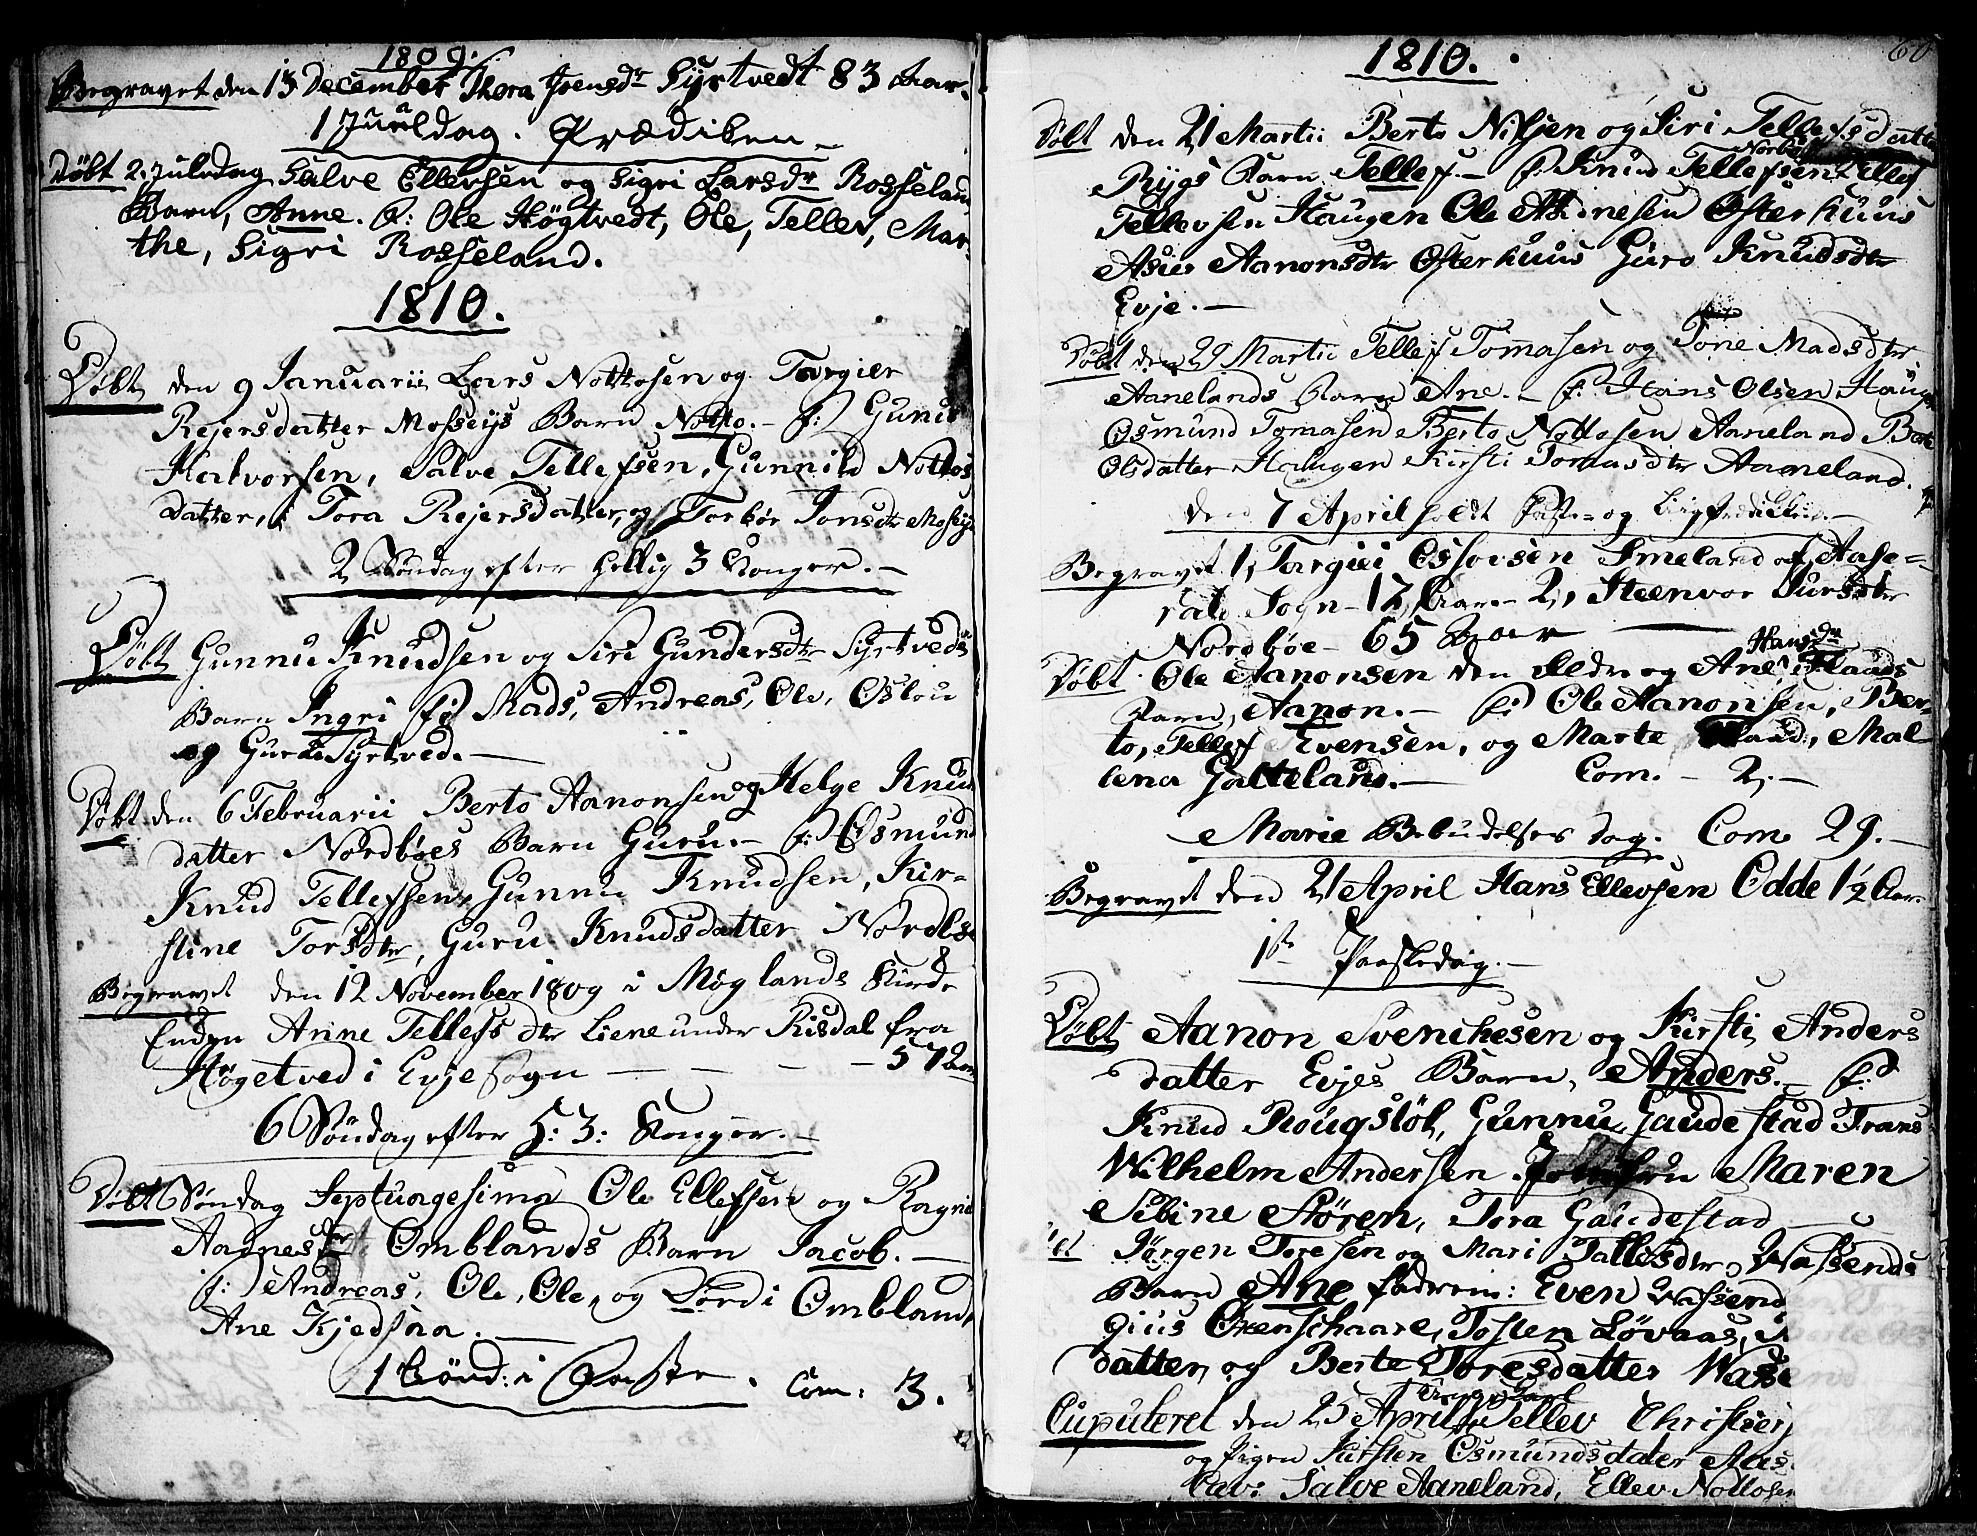 1809.
Begravet den 13 December Thora Jensdr Syrtvedt 83 Aar.
1 Juuldag. Prædiken
Döbt 2. Juledag Salve Ellevsen og Sigri Larsdr Rosseland
Barn, Anne. f: Ole Högtvedt, Ole, Tellev, Mar-
the, Sigri Rosseland.
1810.
Döbt den 9 Januarii Lars Nottosen og Torgier
Rejersdatter Mosseijs Barn Notto. f: Gunu
Halvorsen, Salve Tellefsen, Gunnild Nottos
datter, Tora Rejersdatter, og Torbör Jonsdtr Moseij
2 Söndag efter hellig 3 Konger.
Döbt Gunnu Knudsen og Siri Gundersdtr Syrtveds
Barn Ingri f: Mads, Andreas, Ole, Oslou
og Guru Syrtved.
Döbt den 6 Februarii Berto Aanonsen og Helge Knud
datter Nordböes Barn Guru. f: Osmund
Knud Tellefsen, Gunnu Knudsen, Kir-
stine Torsdtr, Guru Knudsdatter Nordbö
Begravet den 12 November 1809 i Möglands Kirke
Enken Anne Tellefs dtr Liene under Risdal fra
Högetved i Evje sogn — 57 Aar
6 Söndag efter H: 3: Konger.
Döbt Söndag Septuagesima Ole Ellefsen og Ragni
Aadnesdtr Omblands Barn Jacob.
f: Andreas, Ole, Ole, og Lordi Ombland,
Ane Kjedsaa.
1 Sönd: i Faste. Com: 3.
60
1810.
Döbt den 21 Martii Berto Nilsen og Siri Tellefsdatter
Rygs Barn Tellef. f: Knud Tellefsen Norbö Ellef
Tellevsen Haugen Ole Adnesen Osterhuus
Asier Aanonsdtr Osterhuus Guro Knudsdtr
Evje.
Döbt den 29 Martii Tellef Tomasen og Tone Madsdtr
Aanelands Barn Ane. f: Hans Olsen Haugen
Osmund Tomasen Berto Nottosen Aaneland Berte
Olsdatter Haugen Kirsti Tomasdtr Aaneland.
den 7 April holdt Faste- og Liigprædiken
Begravet 1, Torgiei Ossovsen Smeland af Aase-
rals Sogn 17 Aar. 2, Steenvor Jursdtr
Nordböe 65 Aar
Döbt Ole Aanonsen den Eldre og Ane Hansdr Flaads
Barn, Aanon. f: Ole Aanonsen, Ber-
to, Tellef Evensen, og Marte Flaad, Mal
lena Gautteland. Com. 2.
Marie Bebudelses dag. Com 29.
Begravet den 21 April Hans Ellevsen Odde 1½ Aar.
1ste Paaskedag.
Döbt Aanon Svenchesen og Kirsti Anders
datter Evjes Barn, Anders. f:
Knud Rougstöl, Gunnu Gaudestad Frans
Wilhelm Andersen Jomfru Maren
Sibine Stören, Tora Gaudestad
Jörgen Toresen og Mari Tallefsdtr Wassends
Barn Ane faderne: Even Wassend
gius Oxenschaare, Tosten Lövaas,
datter, og Berte Toresdatter Wasse
Cupuleret den 25 April Ungkarl Tellev Christens
og Pigen Kirsten Osmundsdater Aas
Cav: Salve Aaneland, Ellev Nottosen